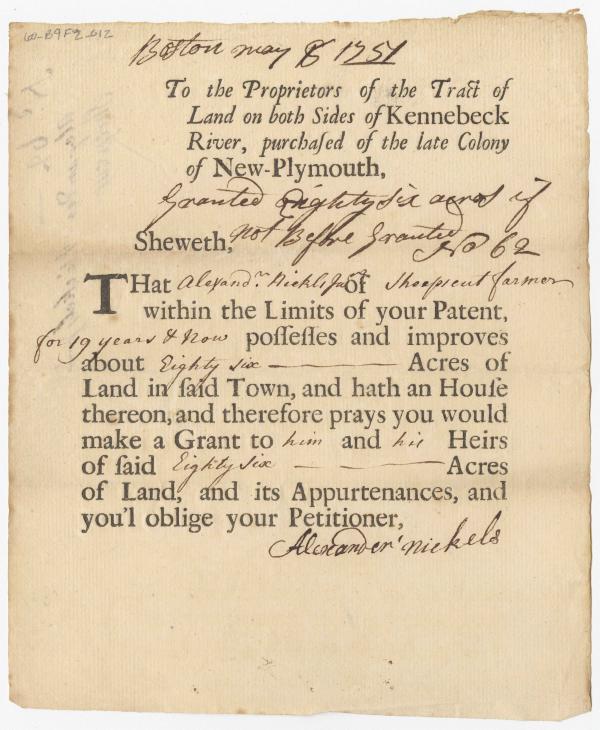 60-B9F2-012
Boston may 8 1751
To the Proprietors of the Tract of
Land on both Sides of Kennebeck
River, purchaſed of the late Colony
of New-Plymouth,
Granted Eighty six acres if
not Before Granted
Sheweth, No 62
THat Alexandr. Nickls Junr of Sheepscut farmer
within the Limits of your Patent,
for 19 years & Now poſſeſſes and improves
about Eighty six — Acres of
Land in ſaid Town, and hath an Houſe
thereon, and therefore prays you would
make a Grant to him and his Heirs
of ſaid Eighty Six — — Acres
of Land, and its Appurtenances, and
you'l oblige your Petitioner,
Alexander Nickels